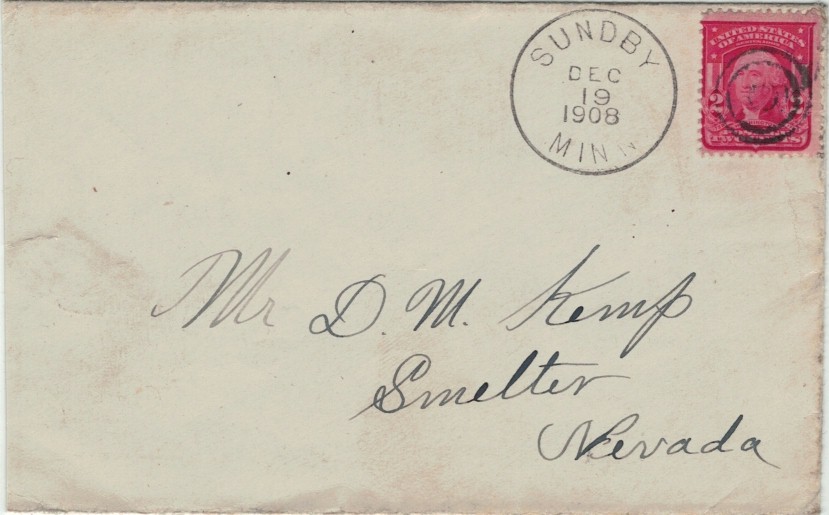 SUNDBY
DEC
19
1908
MINN
UNITED STATES
OF AMERICA
2
2
TWO CENTS
Mr D. M. Kemp
Smelter
Nevada